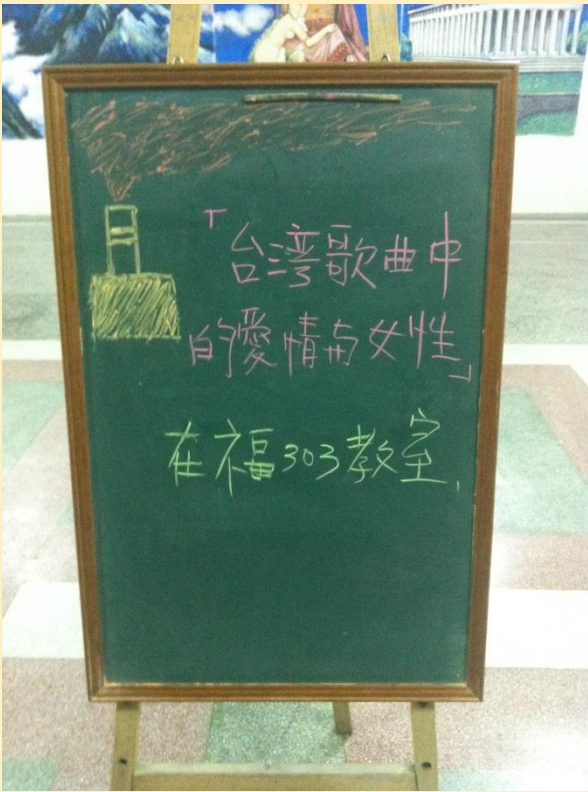 「台湾歌曲中
的愛情与女性」
在福303教室